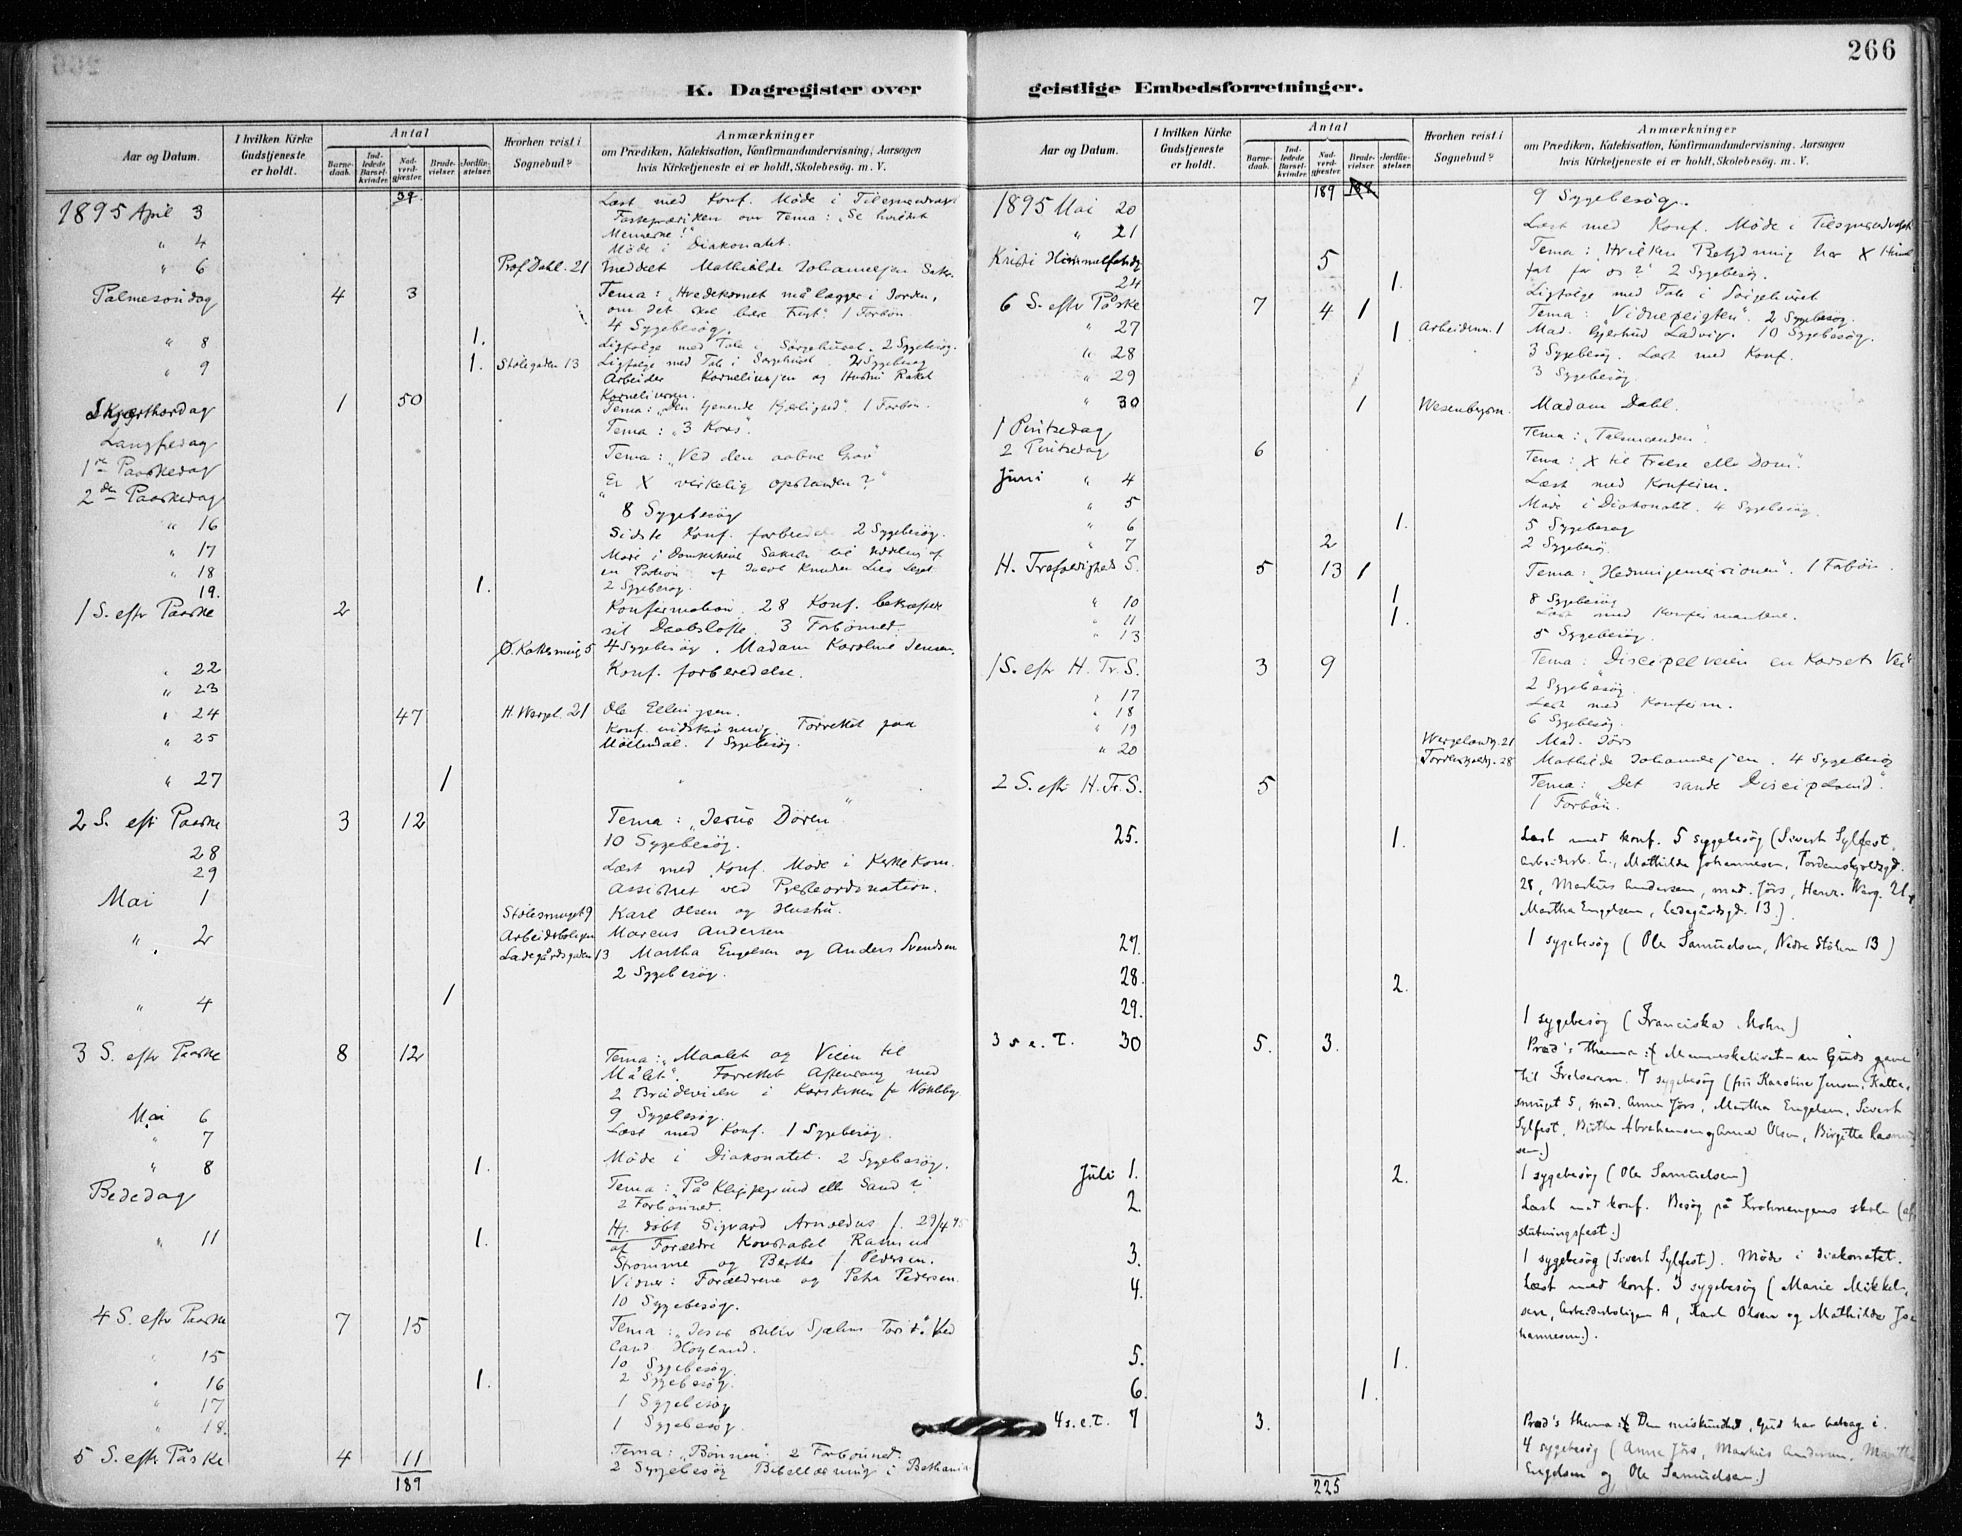 266
K. Dagregister over geistlige Embedsforretninger.
Aar og Datum.
I hvilken Kirke Gudstjeneste er holdt.
Antal
Barnedaab.
Indledede Barselkvinder.
Nadverdgjæster.
Brudevielser.
Jordfæstelser.
Hvorhen reist i Sognebud?
Anmærkninger
om Prædiken, Katekisation, Konfirmandundervisning, Aarsagen
hvis Kirketjeneste ei er holdt, Skolebesøg. m. V.
39.
1895 April 3 Læst med Konf. Möde i
Fasteprædiken over Tema: „Se hvilket
Menneske!"
" 4 Möde i Diakonatet.
" 6 Prof Dahl. 21 Meddelt Mathilde Johannesen Sakr.
Palmesöndag 4 3 Tema: „Hvedekornet må lægges i Jorden,
om det skal bære Frugt". 1 Forbön.
4 Sygebesög.
" 8 1. Ligfølge med Tale i Sørgehuset. 2 Sygebesög.
" 9 1. Stölegaden 13 Ligfølge med Tale i Sørgehuset. 2 Sygebesög
Arbeider Korneliussen og Hustru Rakel
Korneliussen.
Skjærthorsdag 1 50 Tema: „Den tjenende Kjærlighed". 1 Forbön.
Langfredag Tema: „3 Kors".
1ste Paaskedag Tema: „Ved den aabne Grav"
2den Paaskedag „Er X virkelig opstanden?"
" 16 8 Sygebesög
" 17 Sidste Konf. forberedelse 2 Sygebesög.
" 18 Möde i Domkirkens Sakristi til Uddeling af
en Portion af Jacob Legat
19. 1. 2 Sygebesög.
1 S. efter Paaske 2 Konfirmation. 28 Konf. bekræftede
sit Daabsløfte. 3 Forbönner.
Ø. Kattesmug 5 4 Sygebesög. Madam Karoline Jensen.
" 22 Konf. forberedelse.
" 23
" 24 47 H. Wergel. 21 Ole Ellingsen.
" 25 Konf. Forrettet paa
Möllendal. 1 Sygebesög.
" 27 1 "
2 S. eftr Paaske 3 12 Tema: „Jesus Dören"
28 10 Sygebesög.
29 Læst med Konf. Möde i Kirkekom.
Mai 1 Assisteret ved Presteordination.
Stölesmuget 9 Karl Olsen og Hustru.
" 2 Arbeidsboligen Marcus Andersen
Ladegårdsgaden 13 Martha Engelsen og Anders Svendsen
2 Sygebesög.
" 4 1
3 S. eftr Paaske 8 12 Tema: „Maalet og Veien til
Målet". Forrettet Aftensang med
2 Brudevielse i Korskirken for
Mai 6 9 Sygebesög.
" 7 Læst med Konf. 1 Sygebesög.
" 8 1. Möde i Diakonatet. 2 Sygebesög.
Bededag Tema: „På Klippegrund eller Sand?"
2 Forbönner.
" 11 1. Hj. döbt Sigvard Arnoldus f. 29/4 95
af Forældre Konstabel Rasmus
Strømme og Berthe f. Pedersen.
Vidner: Forældrene og Petra Pedersen.
10 Sygebesög.
4 S. eftr Paaske 7 15 Tema: „Jesus bliver Sjælens Ved
Cand Høyland.
" 15 10 Sygebesög
" 16 1. 2 Sygebesög.
" 17 1 Sygebesög
" 18. 1 Sygebesög.
5 S. eftr Påske 4 11 Tema: „Bönnen". 2 Forbönner.
2 Sygebesög Bibellæsning i Bethania
189
Aar og Datum.
I hvilken Kirke Gudstjeneste er holdt.
Antal
Barnedaab.
Indledede Barselkvinder.
Nadverdgjæster.
Brudevielser.
Jordfæstelser.
Hvorhen reist i Sognebud?
Anmærkninger
om Prædiken, Katekisation, Konfirmandundervisning, Aarsagen
hvis Kirketjeneste ei er holdt, Skolebesøg. m. V.
189
1895 Mai 20 9 Sygebesög.
" 21 Læst med Konf. Möde i
Kristi Himmelfartsdg 5 Tema: „Hvilken Betydning har X Himmel
fart for os?" 2 Sygebesög.
24 1. Ligfølge med Tale i Sörgehuset
6 S. eftr Påske 7 4 1 Tema: „Vidnepligten". 2 Sygebesög.
" 27 1 Arbeidern. 1 Mad. Gjertrud Ladvig. 10 Sygebesög.
" 28 3 Sygebesög. Læst med Konf.
" 29 3 Sygebesög.
" 30 1 Wesenbergsm. Madam Dahl.
1 Pintsedag Tema: „Talsmanden".
2 Pintsedag 6 Tema: „X til Frelse eller Dom".
Juni " 4 Læst med Konfirm.
" 5 Möde i Diakonatet. 4 Sygebesög.
" 6 1. 5 Sygebesög
" 7 2 2 Sygebesög.
H. Trefoldigheds S. 5 13 1 Tema: „Hedningemissionen". 1 Forbön.
" 10 1 8 Sygebesög
" 11 1. Læst med Konfirmantene.
" 13 5 Sygebesög.
1 S. eftr H. Tr. S. 3 9 Tema: „Discipelveien en Korsets Vei"
" 17 2 Sygebesög.
" 18 Læst med Konfirm.
" 19 6 Sygebesög.
" 20 Wergelandsg. 21 Mad. Jörs
Tordenskjoldsg. 28 Mathilde Johannesen. 4 Sygebesög
2 S. eftr H. Tr. S. 5 Tema: „Det sande Discipelsind".
1 Forbön.
25. 1. Læst med konf. 5 sygebesög (Sivert Sylfest,
arbeiderb. E., Mathilde Johannesen, Tordenskjoldsgd.
28, Markus Andersen, mad. Jörs, Henr. Werg. 21,
Martha Engelsen, Ladegårdsgd. 13.).
27. 1 sygebesög (Ole Samuelsen, Nedre Stöhm 13)
28. 2.
29. 1 sygebesög (Franciska Mohn)
3 s. e. T. 30 5. 3. Præd's thema: Menneskelivet – en Guds gave
til Frelseren. 7 sygebesög (fru Karoline Jensen, Katte-
smuget 5, mad. Anne Jörs, Martha Engelsen, Sivert
Sylfest, Birthe Abrahamsen og Anna Olsen, Birgitte Rasmus-
sen.)
Juli 1. 2. 1 sygebesög (Ole Samuelsen)
2. Læst med konf. Besög på Krohnengens skole (af-
slutningsfest.)
3. 1 sygebesög (Sivert Sylfest). Möde i diakonatet.
4. Læst med konf. 3 sygebesög (Marie Mikkel-
sen, Arbeiderboligen A, Karl Olsen og Mathilde Jo-
hannesen.).
5. 1.
6. 1.
4 s. e. T. 7 3. Præd's thema: Den miskundhed, Gud har behag i.
4 sygebesög (Anne Jörs, Markus Andersen, Martha
Engelsen og Ole Samuelsen.)
225